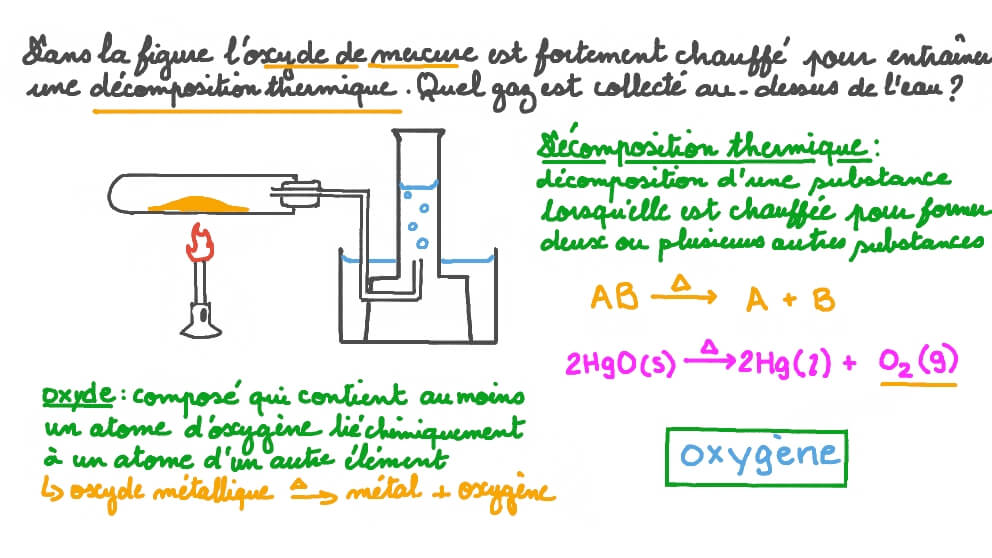 Dans la figure l'oxyde de mercure est fortement chauffé pour entraîner
une décomposition thermique. Quel gaz est collecté au-dessus de l'eau ?
Décomposition thermique :
décomposition d'une substance
lorsqu'elle est chauffée pour former
deux ou plusieurs autres substances
AB —Δ→ A + B
2HgO(s) —Δ→ 2Hg(l) + O₂(g)
oxyde : composé qui contient au moins
un atome d'oxygène lié chimiquement
à un atome d'un autre élément
↳ oxyde métallique —Δ→ métal + oxygène
oxygène